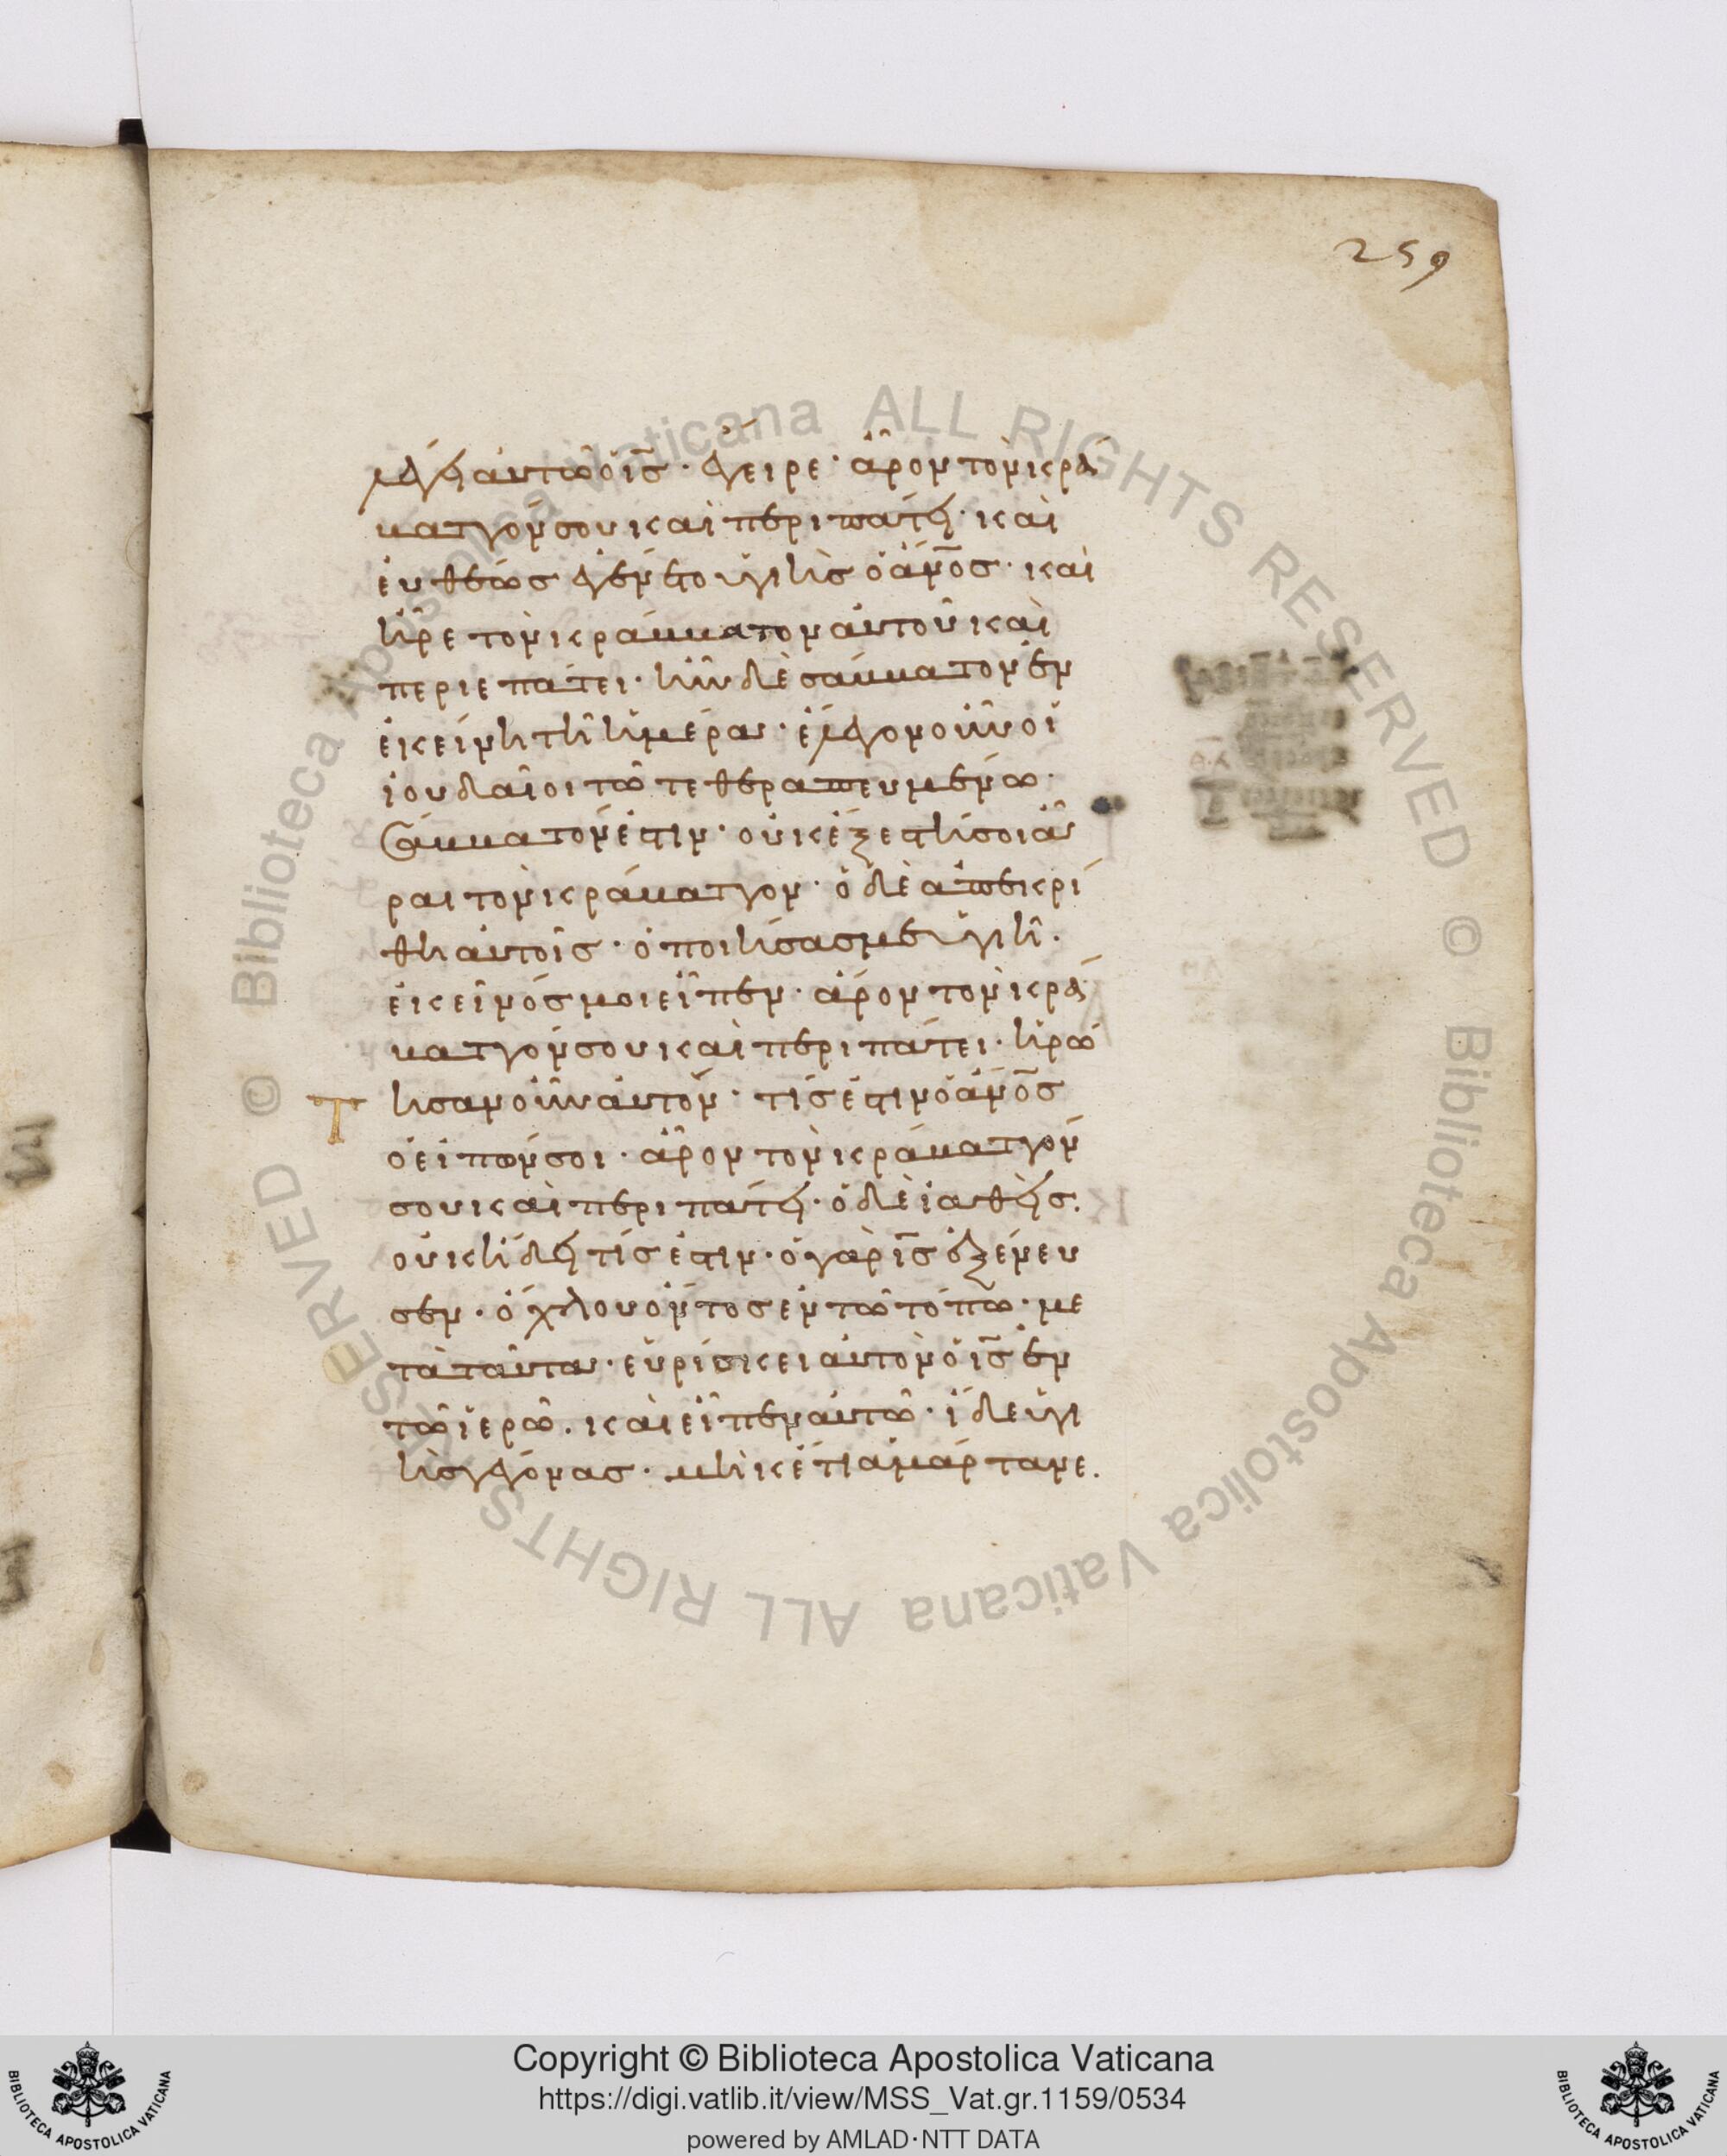 259
λέγει αὐτῶ ὁ ις̅ · ἔγειρε · ἆρον τὸν κρά
βαττόν σου καὶ περιπάτει · καὶ
εὐθέως ἐγένετο ὑγιὴς ὁ ἄν̅ο̅ς · καὶ
ἦρε τὸν κράββατον αὐτοῦ καὶ
περιεπάτει · ἦν δὲ σάββατον ἐν
ἐκείνη τῆ ἡμέρα · ἔλεγον οὖν οἱ
ἰουδαῖοι τῶ τεθεραπευμένω ·
Σάββατόν ἐστιν · οὐκ ἔξεστί σοι ἆ
ραι τὸν κράβαττον · ὁ δὲ ἀπεκρί
θη αὐτοῖς · ὁ ποιήσας με ὑγιῆ ·
ἐκεῖνός μοι εἶπεν · ἆρον τὸν κρά
βαττόν σου καὶ περιπάτει · ἠρώ
τησαν οὖν αὐτόν · τίς ἐστιν ὁ ἄν̅ο̅ς
ὁ εἰπών σοι · ἆρον τὸν κράβαττόν
σου καὶ περιπάτει · ὁ δὲ ἰαθεὶς ·
οὐκ ἤδει τίς ἐστιν · ὁ γὰρ ις̅ ἐξένευ
σεν · ὄχλου ὄντος ἐν τῶ τόπω · με
τὰ ταῦτα · εὑρίσκει αὐτὸν ὁ ις̅ ἐν
τῶ ἱερῶ · καὶ εἶπεν αὐτῶ · ἴδε ὑγι
ὴς γέγονας · μηκέτι ἁμάρτανε ·
Copyright © Biblioteca Apostolica Vaticana
https://digi.vatlib.it/view/MSS_Vat.gr.1159/0534
powered by AMLAD·NTT DATA